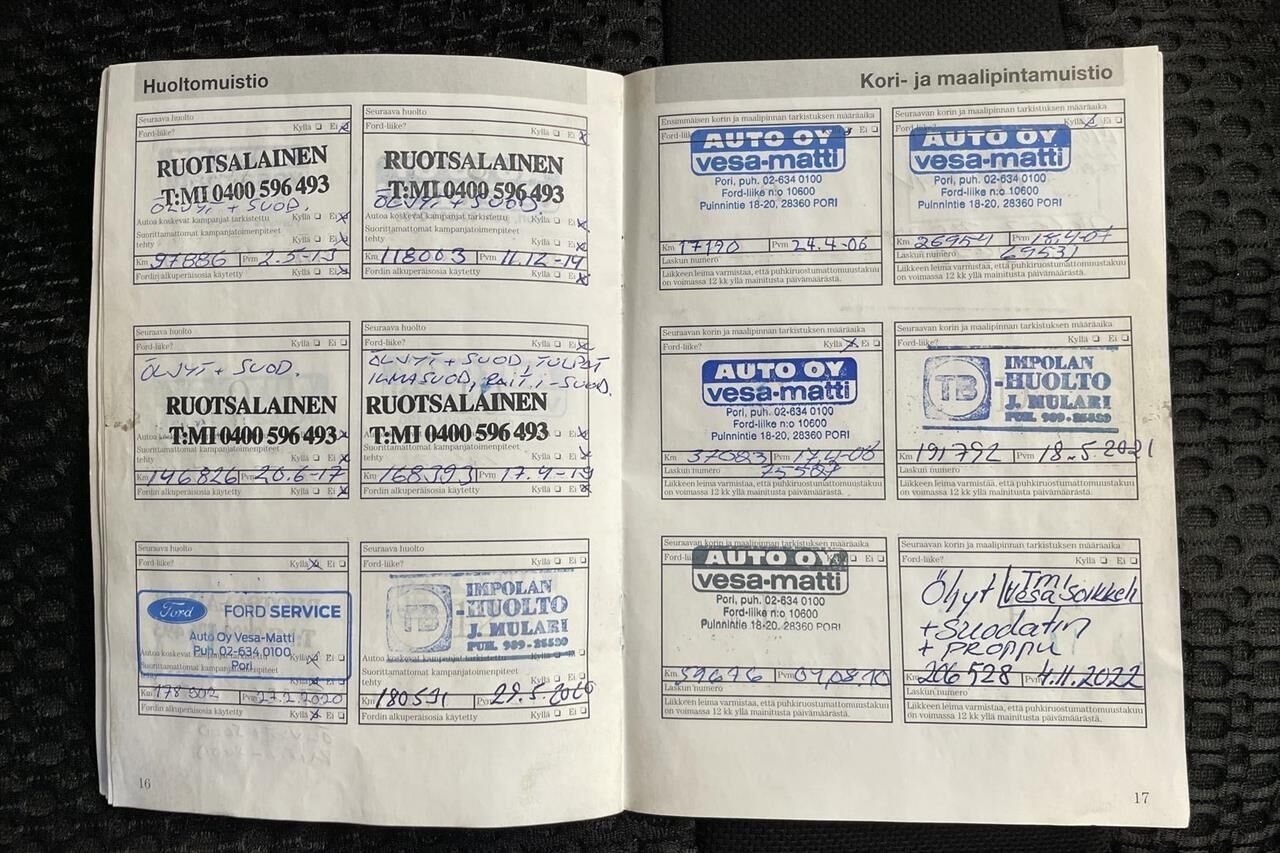 Huoltomuistio
Seuraava huolto
Ford-liike? Kyllä Ei
RUOTSALAINEN
T:MI 0400 596 493
ÖLJYT + SUOD.
Autoa koskevat kampanjat tarkistettu Kyllä Ei
Suorittamattomat kampanjatoimenpiteet
tehty Kyllä Ei
Km 97886 Pvm 2.5-13
Fordin alkuperäisosia käytetty Kyllä Ei
Seuraava huolto
Ford-liike? Kyllä Ei
RUOTSALAINEN
T:MI 0400 596 493
ÖLJYT + SUOD.
Autoa koskevat kampanjat tarkistettu Kyllä Ei
Suorittamattomat kampanjatoimenpiteet
tehty Kyllä Ei
Km 118003 Pvm 11.12-14
Fordin alkuperäisosia käytetty Kyllä Ei
Seuraava huolto
Ford-liike? Kyllä Ei
ÖLJYT + SUOD.
RUOTSALAINEN
T:MI 0400 596 493
Suorittamattomat kampanjatoimenpiteet
tehty Kyllä Ei
Km 146.826 Pvm 20.6-17
Fordin alkuperäisosia käytetty Kyllä Ei
Seuraava huolto
Ford-liike? Kyllä Ei
ÖLJYT + SUOD, TULPAT
ILMASUOD, RAIT.I-SUOD.
RUOTSALAINEN
T:MI 0400 596 493
Suorittamattomat kampanjatoimenpiteet
tehty Kyllä Ei
Km 168393 Pvm 17.4-19
Fordin alkuperäisosia käytetty Kyllä Ei
Seuraava huolto
Ford-liike? Kyllä Ei
Ford FORD SERVICE
Auto Oy Vesa-Matti
Puh. 02-634 0100
Pori
Suorittamattomat kampanjatoimenpiteet
tehty Kyllä Ei
Km 178302 Pvm 27.2.2020
Fordin alkuperäisosia käytetty Kyllä Ei
Seuraava huolto
Ford-liike? Kyllä Ei
TB IMPOLAN
-HUOLTO
J. MULARI
PUH. 989-25520
Autoa koskevat kampanjat tarkistettu Kyllä Ei
Suorittamattomat kampanjatoimenpiteet
tehty Kyllä Ei
Km 180591
Fordin alkuperäisosia käytetty Kyllä Ei
16
Kori- ja maalipintamuistio
Ensimmäisen korin ja maalipinnan tarkistuksen määräaika
Ei
AUTO OY
vesa-matti
Pori, puh. 02-634 0100
Ford-liike n:o 10600
Puinnintie 18-20, 28360 PORI
Km 17190 Pvm 24.4-06
Laskun numero
Liikkeen leima varmistaa, että puhkiruostumattomuustakuu
on voimassa 12 kk yllä mainitusta päivämäärästä.
Seuraavan korin ja maalipinnan tarkistuksen määräaika
Ford-liike? Kyllä Ei
AUTO OY
vesa-matti
Pori, puh. 02-634 0100
Ford-liike n:o 10600
Puinnintie 18-20, 28360 PORI
Km 26954 Pvm 18.4-07
Laskun numero 69531
Liikkeen leima varmistaa, että puhkiruostumattomuustakuu
on voimassa 12 kk yllä mainitusta päivämäärästä.
Seuraavan korin ja maalipinnan tarkistuksen määräaika
Ford-liike? Kyllä Ei
AUTO OY
vesa-matti
Pori, puh. 02-634 0100
Ford-liike n:o 10600
Puinnintie 18-20, 28360 PORI
Km 37083 Pvm 17.4-08
Laskun numero
Liikkeen leima varmistaa, että puhkiruostumattomuustakuu
on voimassa 12 kk yllä mainitusta päivämäärästä.
Seuraavan korin ja maalipinnan tarkistuksen määräaika
Ford-liike? Kyllä Ei
TB IMPOLAN
-HUOLTO
J. MULARI
PUH. 989-25520
Km 191792 Pvm 18.5.2021
Laskun numero
Liikkeen leima varmistaa, että puhkiruostumattomuustakuu
on voimassa 12 kk yllä mainitusta päivämäärästä.
Seuraavan korin ja maalipinnan tarkistuksen määräaika
Ei
AUTO OY
vesa-matti
Pori, puh. 02-634 0100
Ford-liike n:o 10600
Puinnintie 18-20, 28360 PORI
Km 59676 Pvm 040810
Laskun numero
Liikkeen leima varmistaa, että puhkiruostumattomuustakuu
on voimassa 12 kk yllä mainitusta päivämäärästä.
Seuraavan korin ja maalipinnan tarkistuksen määräaika
Ford-liike? Kyllä Ei
Öljyt Tmi
Vesa Soikkeli
+ Suodatin
+ PROPPU
Km 206 528 Pvm 4.11.2022
Laskun numero
Liikkeen leima varmistaa, että puhkiruostumattomuustakuu
on voimassa 12 kk yllä mainitusta päivämäärästä.
17